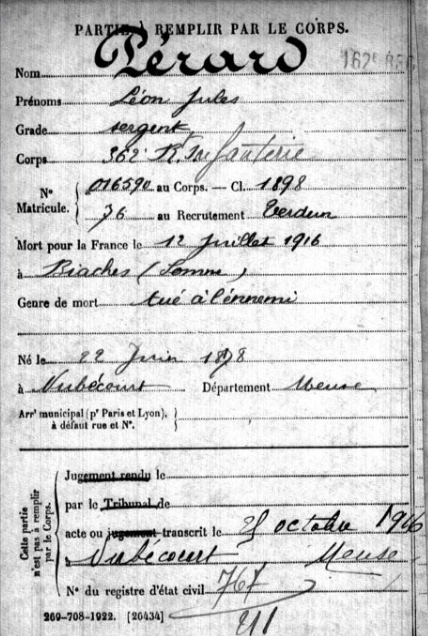 PARTIE À REMPLIR PAR LE CORPS.
Nom Pérard
Prénoms Léon Jules
Grade sergent
Corps 362e R. Infanterie
N° Matricule. { 016590 au Corps. — Cl. 1898
76 au Recrutement Verdun
Mort pour la France le 12 Juillet 1916
à Biaches (Somme)
Genre de mort tué à l'ennemi
Né le 22 Juin 1878
à Nubécourt Département Meuse
Arrt municipal (pr Paris et Lyon), à défaut rue et N°. }
Cette partie n'est pas à remplir par le Corps.
Jugement rendu le
par le Tribunal de
acte ou jugement transcrit le 25 octobre 1916
à Nubécourt Meuse
N° du registre d'état civil 767
269-708-1922. [26434]